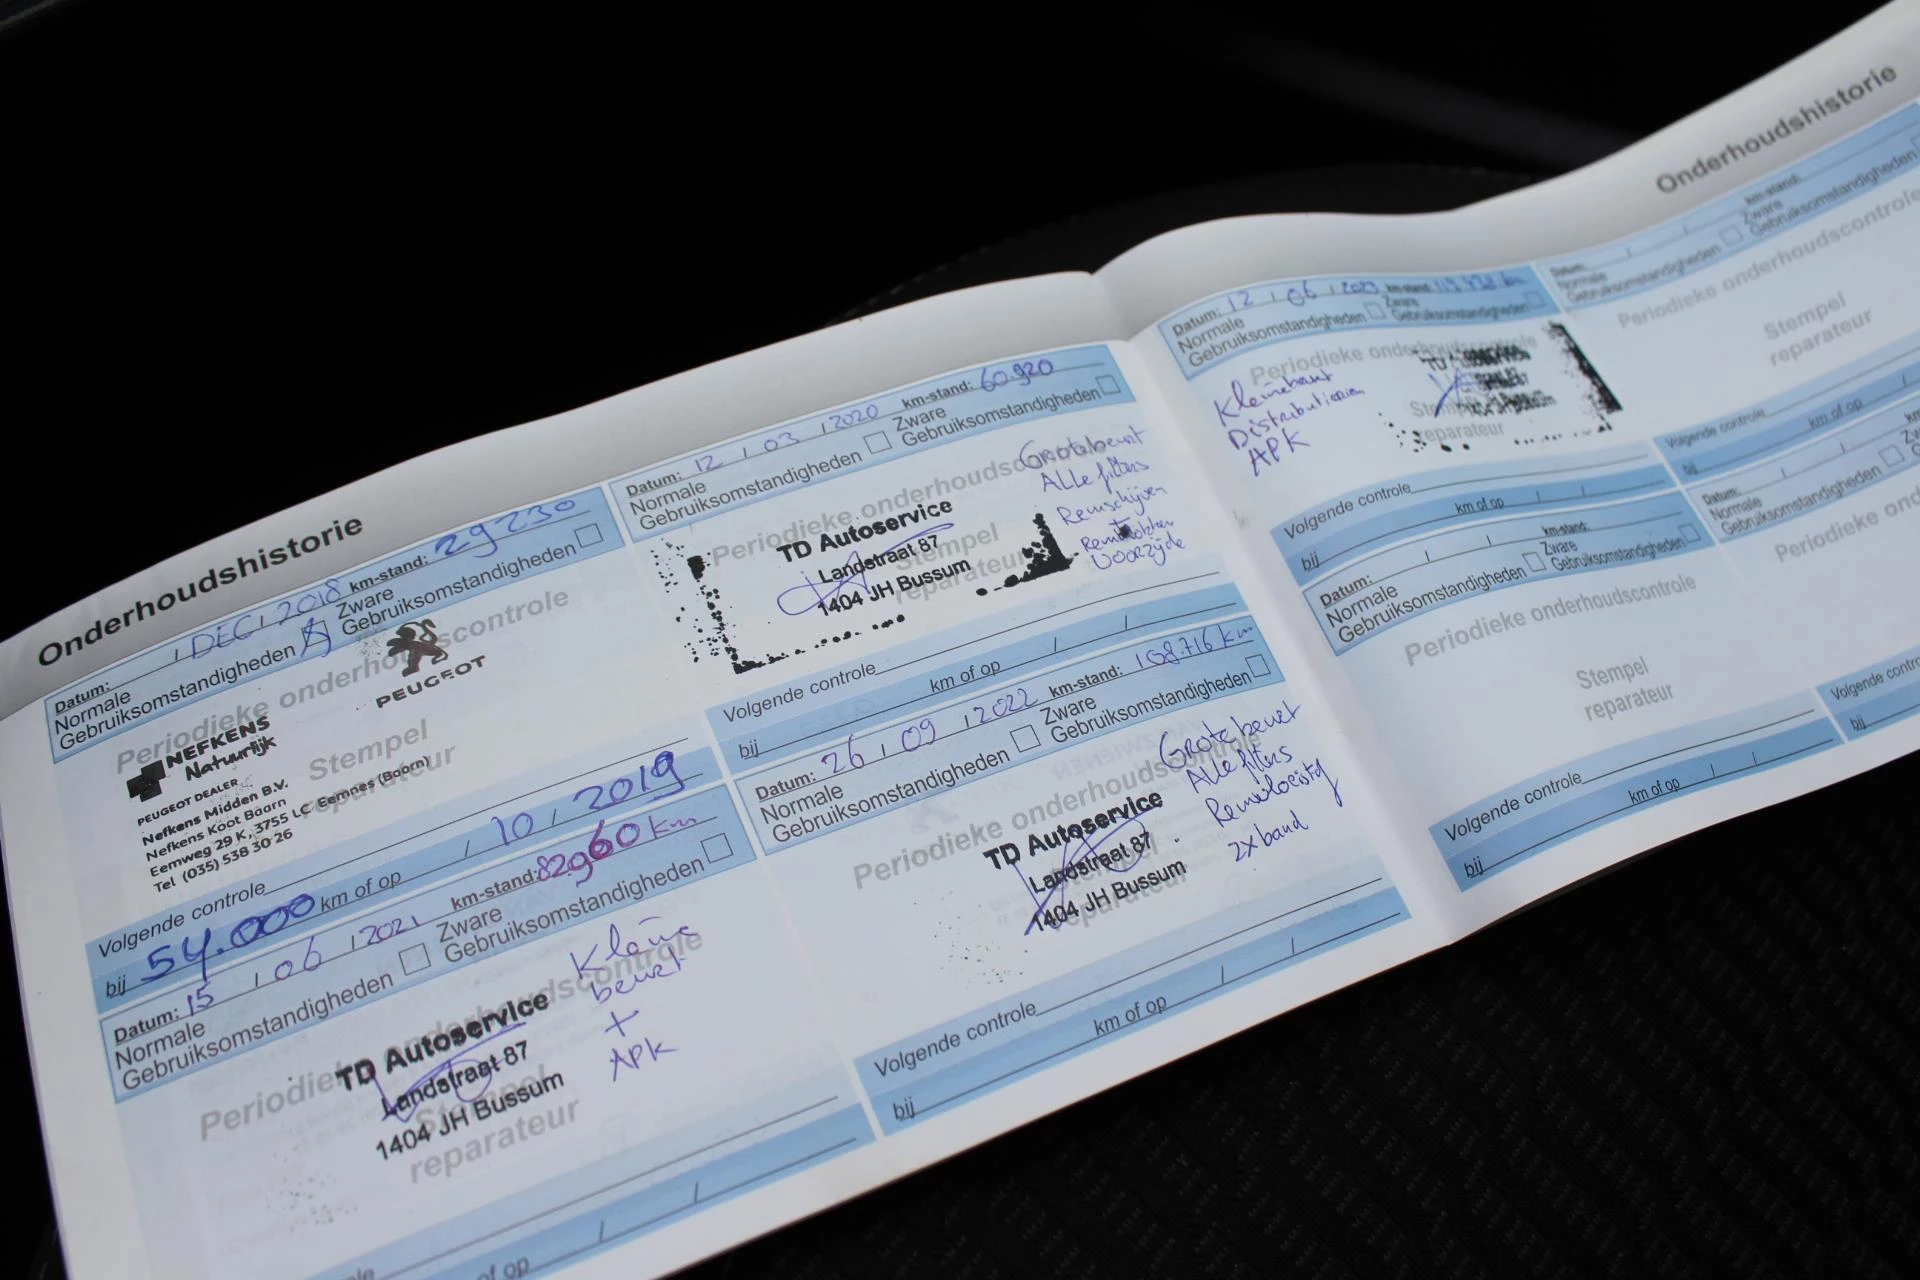 Onderhoudshistorie
Datum: / DEC / 2018 km-stand: 29230
Normale Gebruiksomstandigheden
Zware Gebruiksomstandigheden
Periodieke onderhoudscontrole
PEUGEOT
NEFKENS
Natuurlijk
Stempel
reparateur
PEUGEOT DEALER
Nefkens Midden B.V.
Nefkens Koot Baarn
Eemweg 29 K, 3755 LC Eemnes (Baarn)
Tel (035) 538 30 26
Volgende controle
bij 54.000 km of op / 10 / 2019
Datum: 15 / 06 / 2021 km-stand: 82960 km
Normale Gebruiksomstandigheden
Zware Gebruiksomstandigheden
Periodieke onderhoudscontrole
Kleine
beurt
+
APK
TD Autoservice
Landstraat 87
1404 JH Bussum
Stempel
reparateur
km of op / /
Datum: 12 / 03 / 2020 km-stand: 60.920
Normale Gebruiksomstandigheden
Zware Gebruiksomstandigheden
Periodieke onderhoudscontrole
Grote beurt
Alle filters
Remschijven
Voorzijde
TD Autoservice
Landstraat 87
1404 JH Bussum
Stempel
reparateur
Volgende controle
bij km of op / /
Datum: 26 / 09 / 2022 km-stand: 108.716 km
Normale Gebruiksomstandigheden
Zware Gebruiksomstandigheden
Periodieke onderhoudscontrole
Grote beurt
Alle filters
Remvloeistof
2x band
TD Autoservice
Landstraat 87
1404 JH Bussum
Stempel
reparateur
Volgende controle
bij km of op / /
Onderhoudshistorie
Datum: 12 / 06 / 2023 km-stand:
Normale Gebruiksomstandigheden
Zware Gebruiksomstandigheden
Periodieke onderhoudscontrole
Kleine beurt
Distributieriem
APK
TD
Stempel
reparateur
Volgende controle
bij km of op / /
Datum: / / km-stand:
Normale Gebruiksomstandigheden
Zware Gebruiksomstandigheden
Periodieke onderhoudscontrole
Stempel
reparateur
Volgende controle
bij km of op / /
Datum: / / km-stand:
Normale Gebruiksomstandigheden
Zware Gebruiksomstandigheden
Periodieke onderhoudscontrole
Stempel
reparateur
Volgende controle
bij km of op /
Datum: /
Normale Gebruiksomstandigheden
Periodieke
Volgende controle
bij